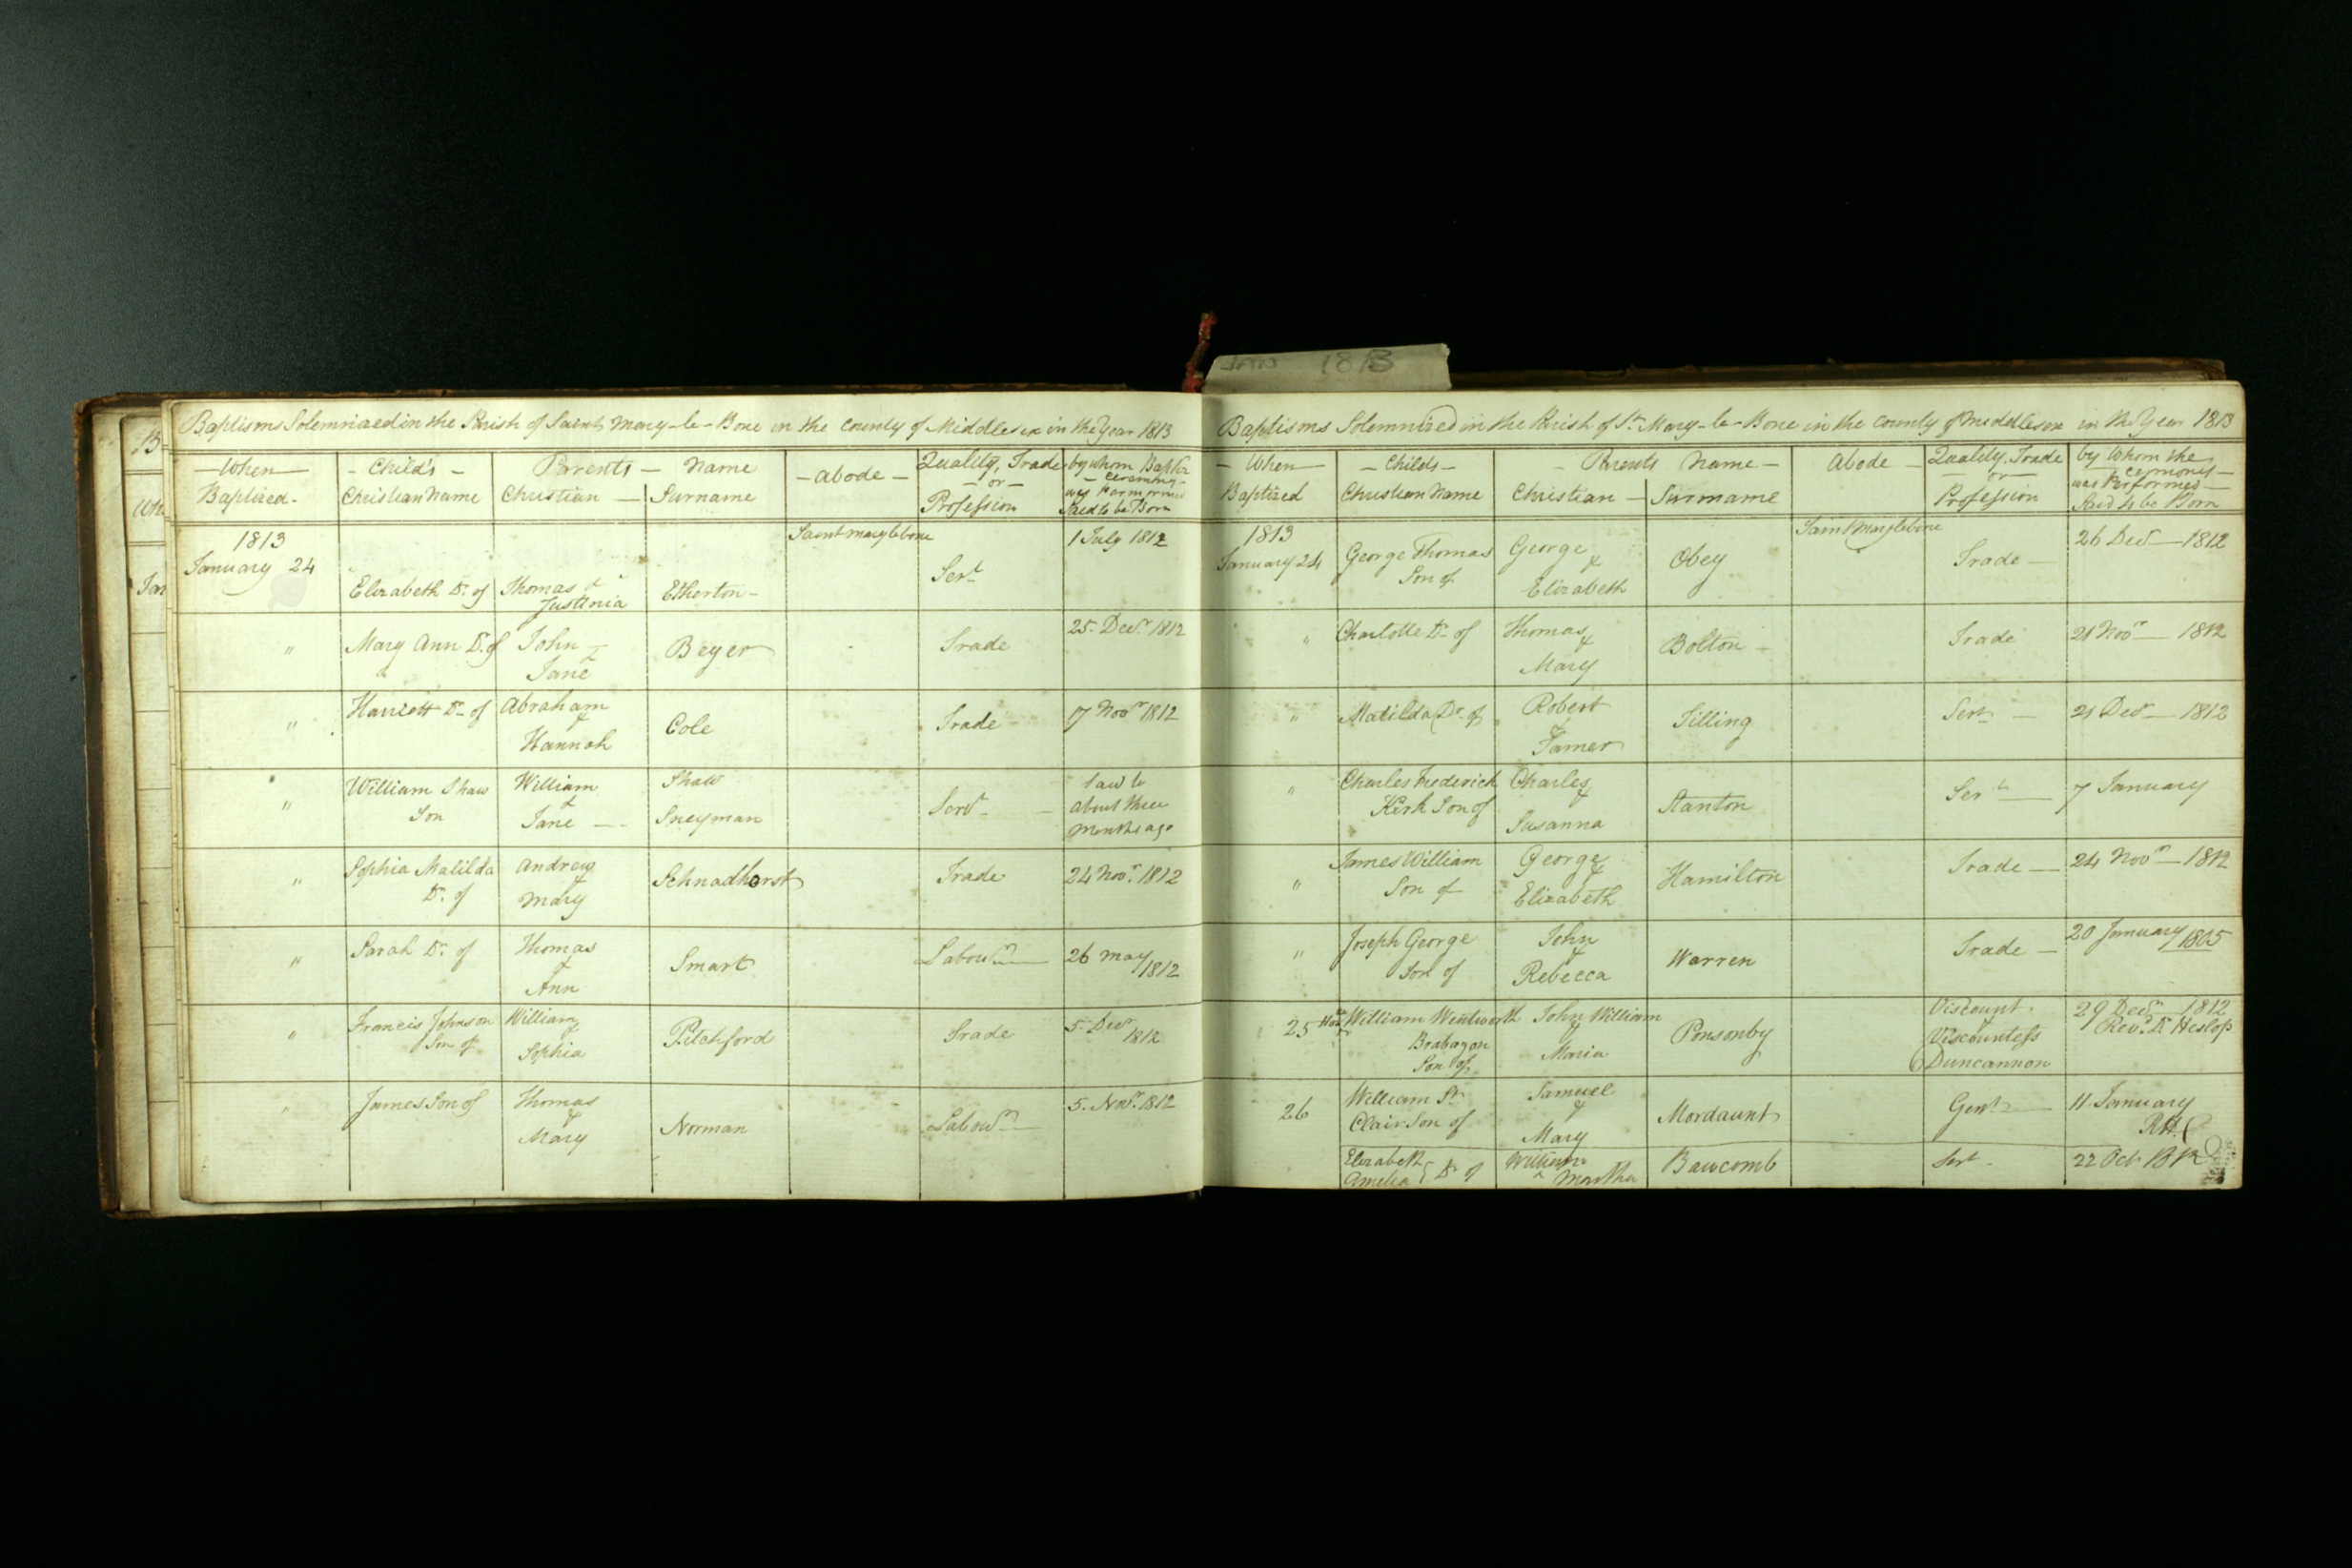 JAN 1813
Baptisms Solemnized in the Parish of Saint Mary-le-Bone in the County of Middlesex in the Year 1813
When Baptized
Child's Christian Name
Parents Name
Christian
Surname
Abode
Quality, Trade or Profession
by whom
Ceremony
was Performed
Said to be Born
1813
January 24
Elizabeth Dr. of
Thomas &
Etherton
Saint Marylebone
Servt
1 July 1812
"
Mary Ann Dr. of
John &
Jane
Beyer
Trade
25 Decr. 1812
"
Harriott Dr. of
Abraham
&
Hannah
Cole
Trade
17 Novr 1812
"
William Shaw
Son
William
&
Jane
Shaw
Sneyman
Servt
Said to
about three
months ago
"
Sophia Matilda
Dr. of
Andrew
&
Mary
Schnadhorst
Trade
24 Novr. 1812
"
Sarah Dr. of
Thomas
&
Ann
Smart
Labourr
26 May
1812
"
Francis Johnson
Son of
William
&
Sophia
Pitchford
Trade
5 Decr
1812
"
James Son of
Thomas
&
Mary
Norman
Labourr
5. Novr. 1812
Baptisms Solemnized in the Parish of St. Mary-le-Bone in the County of Middlesex in the Year 1813
When Baptized
Childs Christian Name
Parents Name
Christian
Surname
Abode
Quality, Trade or Profession
by Whom the
cermony
was Performed
Said to be Born
1813
January 24
George Thomas
Son of
George
&
Elizabeth
Obey
Saint Marylebone
Trade
26 Decr 1812
"
Charlotte Dr. of
Thomas
&
Mary
Bolton
Trade
21 Novr 1812
"
Matilda Dr. of
Robert
&
Tilling
Servt
21 Decr 1812
"
Charles Frederick
Kirk Son of
Charles
&
Susanna
Stanton
Servt
7 January
"
James William
Son of
George
&
Elizabeth
Hamilton
Trade
24 Novr 1812
"
Joseph George
Son of
John
&
Rebecca
Warren
Trade
20 January
1805
25
William Wentworth
Brabazon
Son of
John William
&
Maria
Ponsonby
Viscount
&
Viscountess
Duncannon
29 Decr 1812
Revd. Dr Heslop
26
William St.
Clair Son of
Samuel
&
Mary
Mordaunt
Gent
11 January
R.H.
Elizabeth
Amelia } Dr of
William
& Martha
Bawcomb
Servt
22 Oct